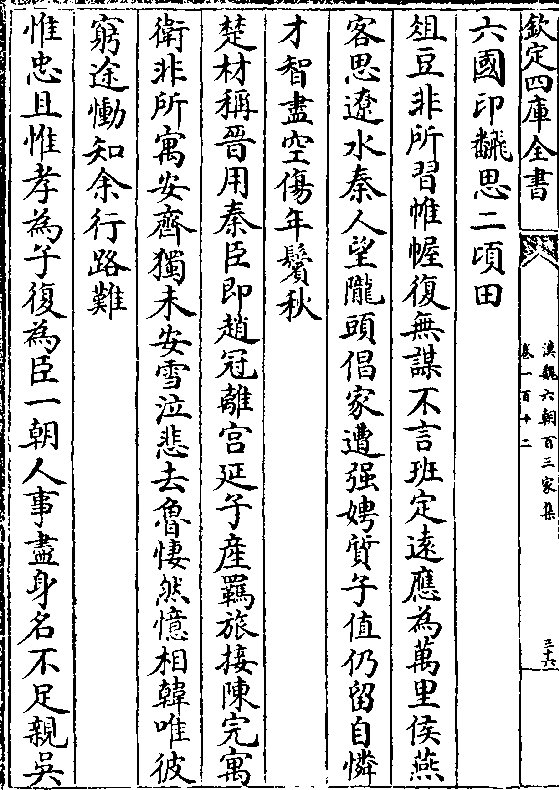 欽定四庫全書
漢魏六朝百三家集
卷一百十二
三十六
六國印飜思二頃田
俎豆非所習帷幄復無謀不言班定遠應為萬里侯燕
客思遼水秦人望隴頭倡家遭强娉質子值仍留自憐
才智盡空傷年鬢秋
楚材稱晉用秦臣即趙冠離宫延子産羈旅接陳完寓
衛非所寓安齊獨未安雪泣悲去魯悽然憶相韓唯彼
窮途慟知余行路難
惟忠且惟孝為子復為臣一朝人事盡身名不足親吳